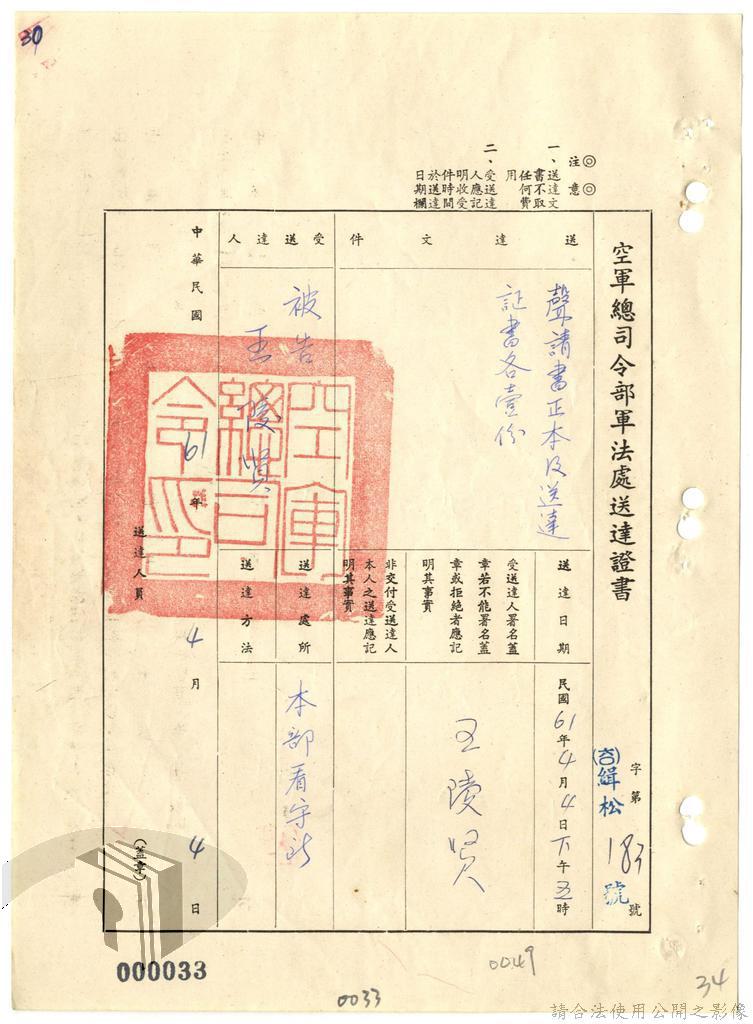 30
◎注意◎
一、送達文書不取任何費用
二、受送達人應記明收受件時間於送達日期欄
空軍總司令部軍法處送達證書
(咨)緝松字第183號
送達文件
聲請書正本及送達
証書各壹份
受送達人
被告
王陵賢
送達日期
民國61年4月4日下午五時
受送達人署名蓋章若不能署名蓋章或拒絕者應記明其事實
王陵賢
非交付受送達人本人之送達應記明其事實
送達處所
本部看守所
送達方法
中華民國61年4月4日
送達人員
(蓋章)
空軍總司令印
000033
0033
0049
34
請合法使用公開之影像